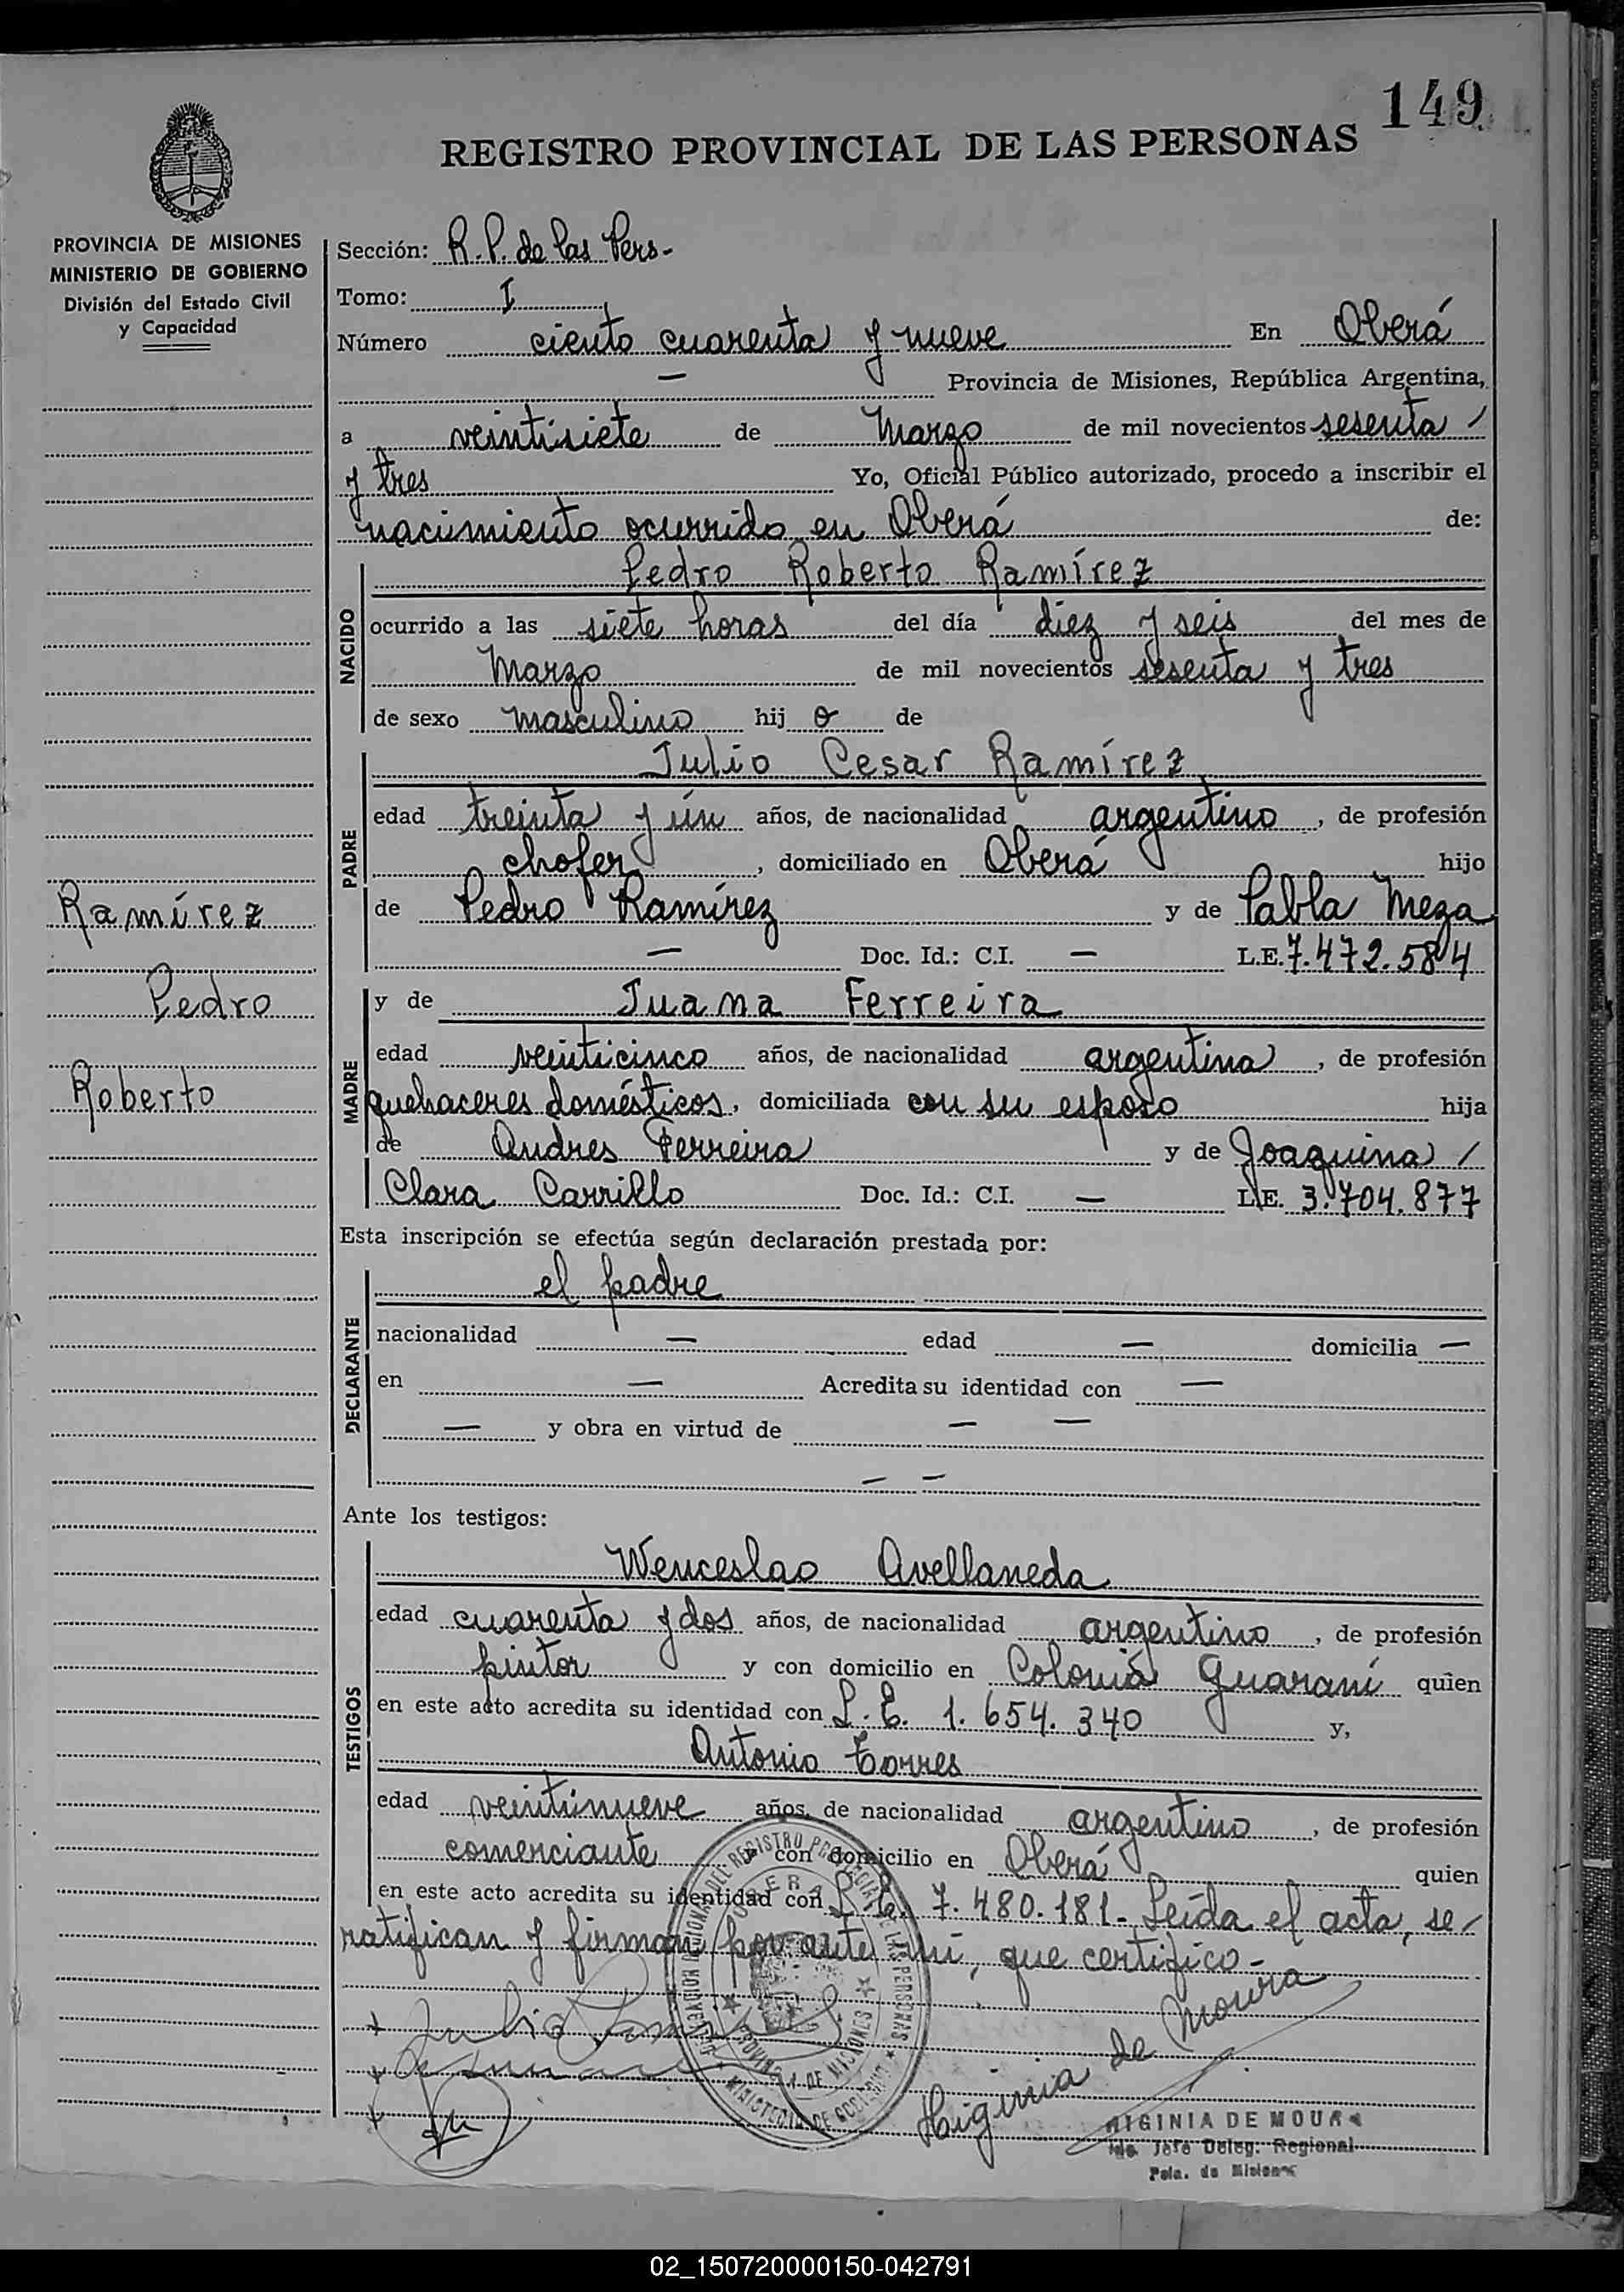 149
REGISTRO PROVINCIAL DE LAS PERSONAS
PROVINCIA DE MISIONES
MINISTERIO DE GOBIERNO
División del Estado Civil
y Capacidad
Ramírez
Pedro
Roberto
Sección: R. P. de las Pers-
Tomo: I
Número ciento cuarenta y nueve En Oberá
— Provincia de Misiones, República Argentina,
a veintisiete de Marzo de mil novecientos sesenta /
y tres Yo, Oficial Público autorizado, procedo a inscribir el
nacimiento ocurrido en Oberá de:
NACIDO
Pedro Roberto Ramírez
ocurrido a las siete horas del día diez y seis del mes de
Marzo de mil novecientos sesenta y tres
de sexo masculino hijo de
PADRE
Julio Cesar Ramírez
edad treinta y ún años, de nacionalidad argentino, de profesión
chofer, domiciliado en Oberá hijo
de Pedro Ramírez y de Pabla Meza
— Doc. Id.: C.I. — L.E. 7.472.584
MADRE
y de Juana Ferreira
edad veinticinco años, de nacionalidad argentina, de profesión
quehaceres domésticos, domiciliada con su esposo hija
de Andres Ferreira y de Joaquina /
Clara Carrillo Doc. Id.: C.I. — L.E. 3.704.877
Esta inscripción se efectúa según declaración prestada por:
DECLARANTE
el padre
nacionalidad — edad — domicilia —
en — Acredita su identidad con —
— y obra en virtud de — —
— —
Ante los testigos:
TESTIGOS
Wenceslao Avellaneda
edad cuarenta y dos años, de nacionalidad argentino, de profesión
pintor y con domicilio en Colonia Guaraní quien
en este acto acredita su identidad con L.E. 1.654.340 y,
Antonio Torres
edad veintinueve años, de nacionalidad argentino, de profesión
comerciante y con domicilio en Oberá quien
en este acto acredita su identidad con L.E. 7.480.181- Leída el acta, se/
ratifican y firman por ante mí, que certifico-
Julio Ramirez
Higinia de Moura
HIGINIA DE MOURA
Jefe Deleg. Regional
Pcia. de Misiones
02_150720000150-042791